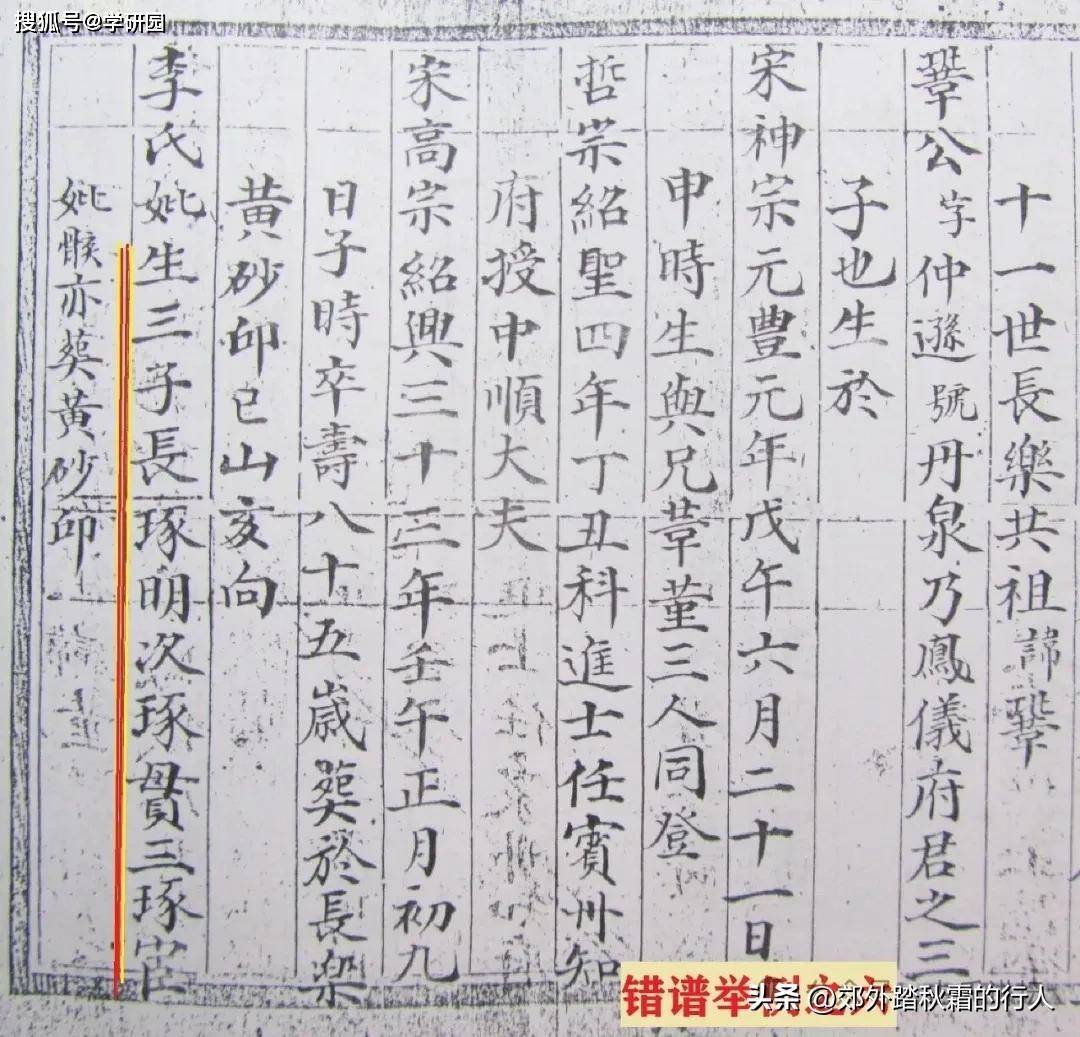 搜狐号@学研园
十一世長樂共祖諱鞏
鞏公字仲遜號丹泉乃鳳儀府君之三
子也生於
宋神宗元豊元年戊午六月二十一日
申時生與兄葦董三人同登
哲宗紹聖四年丁丑科進士任賓州知
府授中順大夫
宋高宗紹興三十三年壬午正月初九
日子時卒壽八十五歲葵於長樂
黃砂卬巳山亥向
李氏妣生三子長琢明次琢貫三琢宦
妣骸亦葵黃砂卬
错谱举例之六
头条@郊外踏秋霜的行人